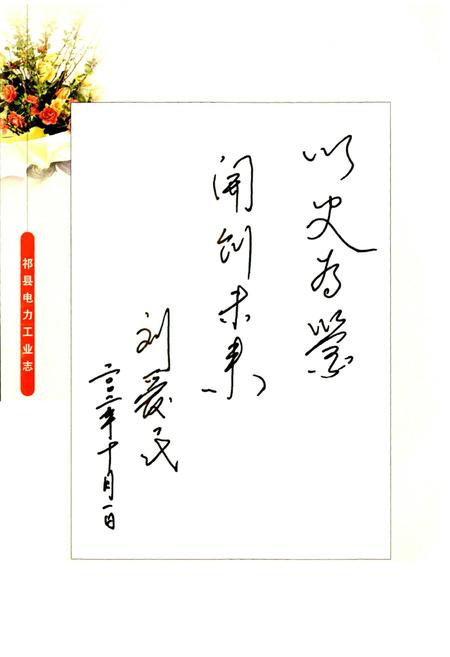 以史为鉴
開创未来
刘爱民
二〇〇二年十月一日
祁县电力工业志